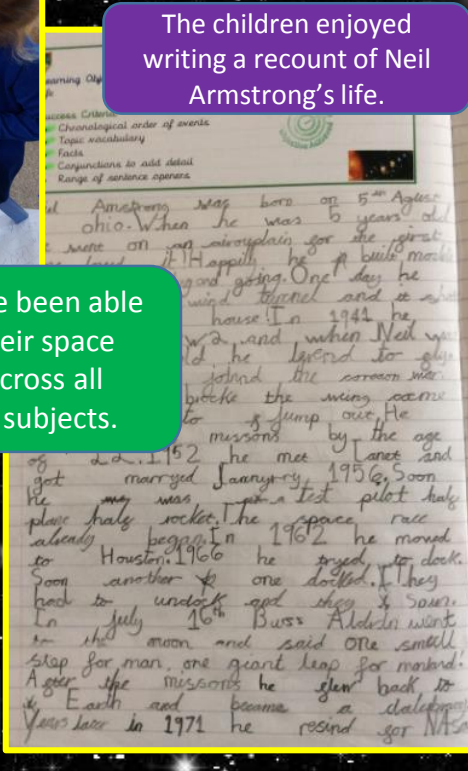 The children enjoyed
writing a recount of Neil
Armstrong's life.
earning Obj
fe
uccess Criteria
Chronological order of events
Topic vocabulary
Facts
Conjunctions to add detail
Range of sentence openers
Objective Achieved
il Amstrong was born on 5th Agust
ohio. When he was 5 years old
went on an airouplain for the first
loved it! Happily he built
going. One day he
wind and it
house! In 1941 he
w2, and when Neil
he to
joind the war.
brocke the wing came
to jump out. He
missons by the age
of 22. 1952 he met Janet and
got marryed Jannyrry, 1956. Soon
he was a test pilot half
plane half rocket. The space race
already began. In 1962 he moved
to Houston. 1966 he tryed to dock.
Soon another one docked. They
had to undock and they Spun.
In July 16th Buss Aldrin went
to the moon and said one small
step for man, one giant leap for mankind!
After the missons he flew back to
Earth and became a
Years later in 1971 he resind for NAsa
e been able
eir space
cross all
subjects.